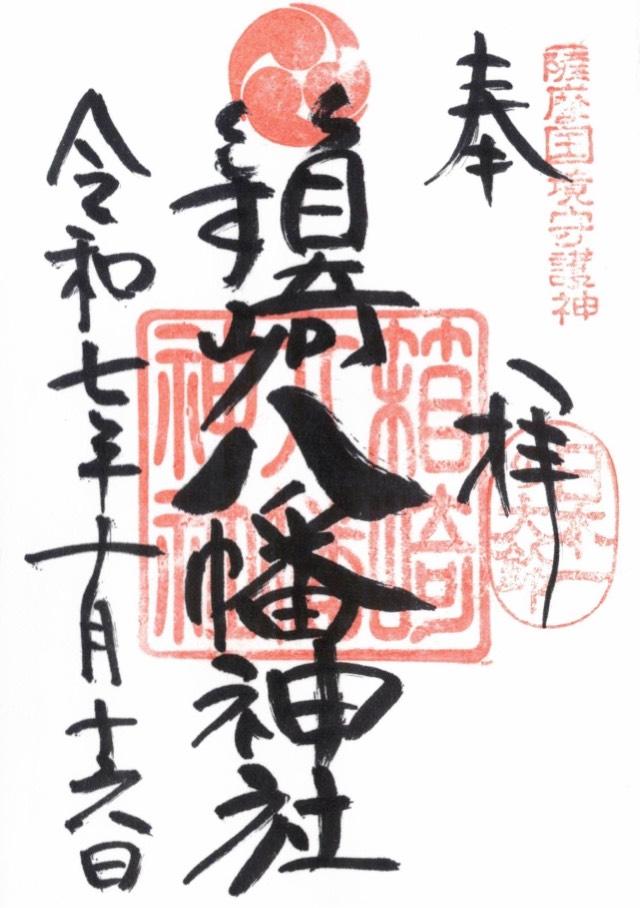 薩摩国境守護神
奉拝
日本一大鈴
箱崎八幡神社
箱崎
八幡
神社
令和七年十月十六日